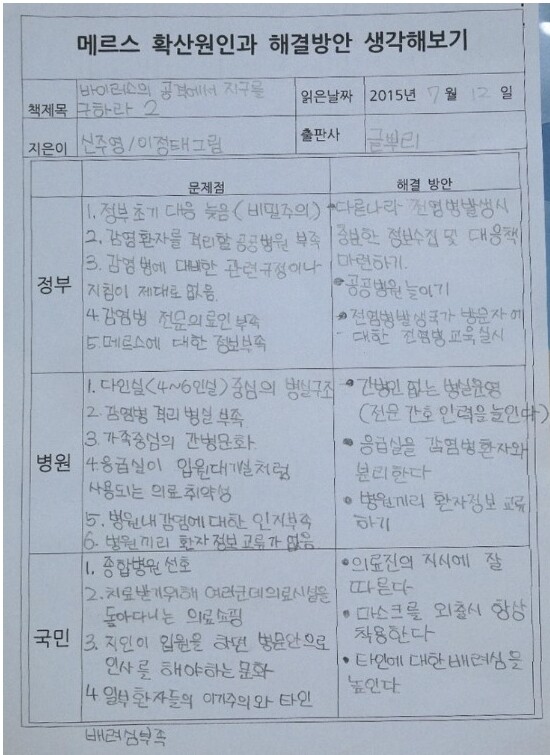 메르스 확산원인과 해결방안 생각해보기
책제목 바이러스의 공격에서 지구를 구하라 2
읽은날짜 2015년 7월 12일
지은이 신주영/이정태그림
출판사 글뿌리
문제점 해결 방안
정부
1. 정부초기 대응 늦음(비밀주의)
2. 감염환자를 격리할 공공병원 부족
3. 감염병에 대비한 관련규정이나
지침이 제대로 없음.
4 감염병 전문의료인 부족
5. 메르스에 대한 정보부족
다른나라 전염병발생시
충분한 정보수집 및 대응책
마련하기.
공공병원 늘이기
전염병발생국가 방문자에
대한 전염병교육실시
병원
1. 다인실(4~6인실)중심의 병실구조
2. 감염병 격리 병실 부족
3. 가족중심의 간병문화.
4 응급실이 입원대기실처럼
사용되는 의료취약성
5. 병원내감염에 대한 인지부족
6. 병원끼리 환자정보교류가 없음
간병인 없는 병실운영
(전문 간호인력을 높인다)
응급실을 감염병환자와
분리한다
병원끼리 환자정보 교류
하기
국민
1. 종합병원선호
2. 치료받기위해 여러군데의료시설을
돌아다니는 의료쇼핑
3. 지인이 입원을 하면 병문안으로
인사를 해야하는문화
4 일부환자들의 이기주의와 타인
배려심부족
의료진의 지시에 잘
따른다
마스크를 외출시 항상
착용한다
타인에 대한배려심을
높인다